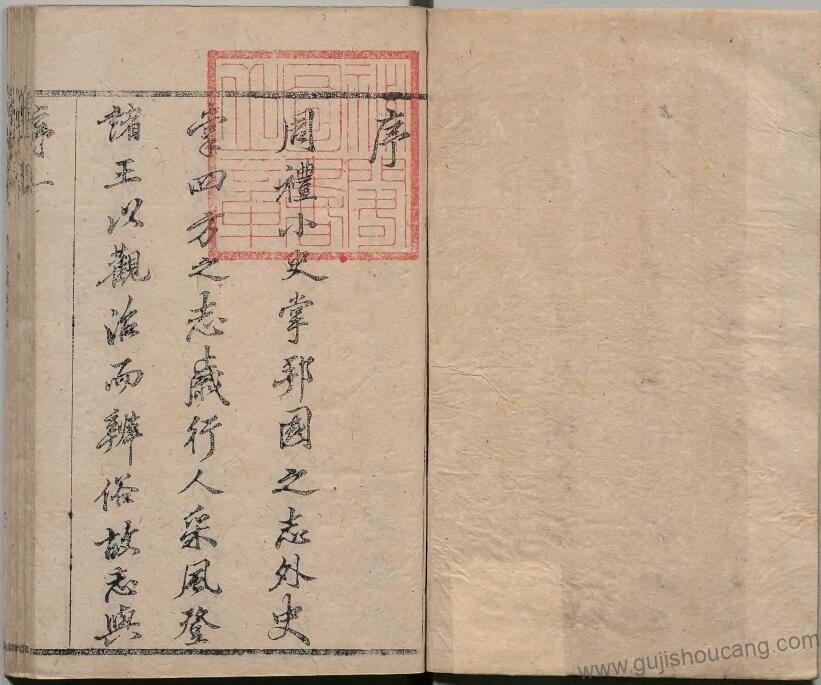 序
周禮小史掌邦國之志外史
掌四方之志歲行人采風登
諸王以觀治而辨俗故志與
序 一
www.gujishoucang.com